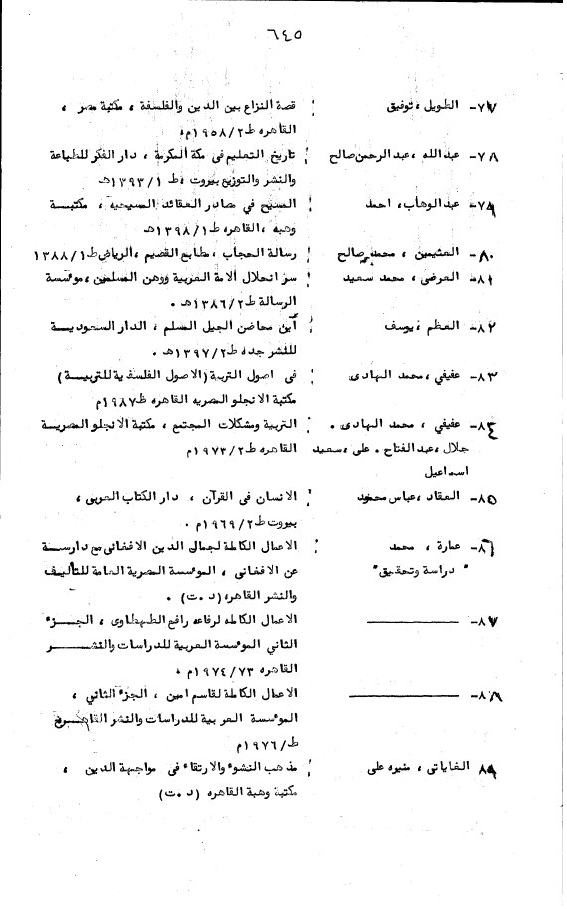 ٦٤٥
٧٧- الطويل، توفيق : قصة النزاع بين الدين والفلسفة ، مكتبة مصر ،
القاهره ط٢/ ١٩٥٨م.
٧٨- عبدالله ، عبدالرحمن صالح : تاريخ التعليم في مكة المكرمة ، دار الفكر للطباعة
والنشر والتوزيع بيروت ، ط١ /١٣٩٣هـ
٧٩- عبدالوهاب، احمد : المسيح في مصادر العقائد المسيحيه ، مكتبـــة
وهبه ، القاهره، ط١ /١٣٩٨هـ
٨٠- العثيمين ، محمد صالح : رسالة الحجاب ، مطابع القصيم ، الرياض ط١ / ١٣٨٨
٨١- العرضي ، محمد سعيد : سر انحلال ألامة العربية ووهن المسلمين ، موئسسة
الرسالة ط٢/ ١٣٨٦هـ .
٨٢- العظم ، يوسف : أين محاضن الجيل المسلم ، الدار السعوديـــة
للنشر جده ط٢/ ١٣٩٧هـ .
٨٣- عفيفي ، محمد الهادى : فى اصول التربة (الاصول الفلسفية للتربيـــة)
مكتبة الانجلو المصريه القاهره ط١٩٨٧م
٨٤- عفيفي ، محمد الهادى . : التربية ومشكلات المجتمع ، مكتبة الانجلو المصريـــة
جلال ، عبدالفتاح . على ، سعيد القاهره ط٢/ ١٩٧٣م
اسماعيل
٨٥- العقاد ، عباس محمود : الانسان فى القرآن ، دار الكتاب العربى ،
بيروت ط٢/ ١٩٦٩م .
٨٦- عمارة ، محمد : الاعمال الكاملة لجمال الدين الافغانى مع دارســـة
" دراسة وتحقيق" عن الافغانى ، الموئسسة المصرية العامة للتأليف
والنشر القاهره، (د ٠ت) .
٨٧- ـــــــــــــ : الاعمال الكامله لرفاعه رافع الطهطاوى ، الجـــزء
الثاني الموئسسة العربية للدراسات والنشـــــر
القاهره ٧٣ / ١٩٧٤م .
٨٨- ـــــــــــــ : الاعمال الكاملة لقاسم امين ، الجزء الثاني ،
الموئسسة العربية للدراسات والنشر القاهـــرة
ط/ ١٩٧٦م
٨٩ الغاياتى ، منيره على : مذهب النشوء والارتقاء فى مواجهة الدين ،
مكتبة وهبة القاهره (د ٠ت)